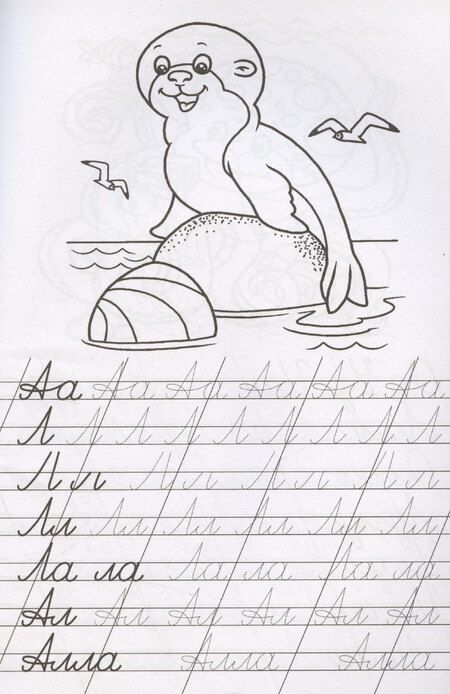 Аа Аа Аа Аа Аа Аа
Л Л Л Л Л Л Л Л Л Л
Л л Л л Л л Л л
Лл Лл Лл Лл Лл Лл
Ла ла Ла ла Ла ла
Ал Ал Ал Ал Ал Ал
Алла Алла Алла